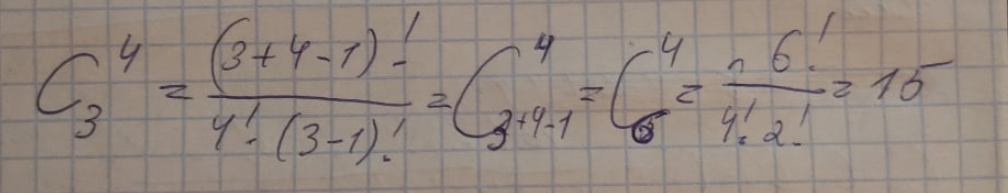 C₃⁴ = (3+4-1)! / 4!·(3-1)! = C₃₊₄₋₁⁴ = C₆⁴ = 6! / 4!·2! = 15